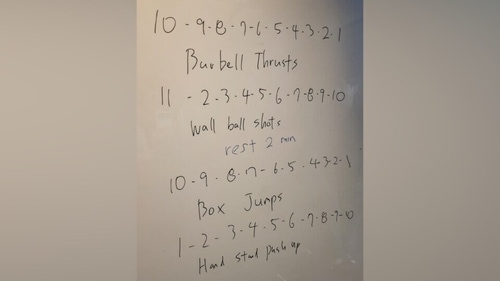 10 - 9 - 8 - 7 - 6 - 5 - 4 - 3 - 2 - 1
Barbell Thrusts
11 - 2 - 3 - 4 - 5 - 6 - 7 - 8 - 9 - 10
Wall ball shots
rest 2 min
10 - 9 - 8 - 7 - 6 - 5 - 4 - 3 - 2 - 1
Box Jumps
1 - 2 - 3 - 4 - 5 - 6 - 7 - 8 - 9 - 10
Hand stand push up